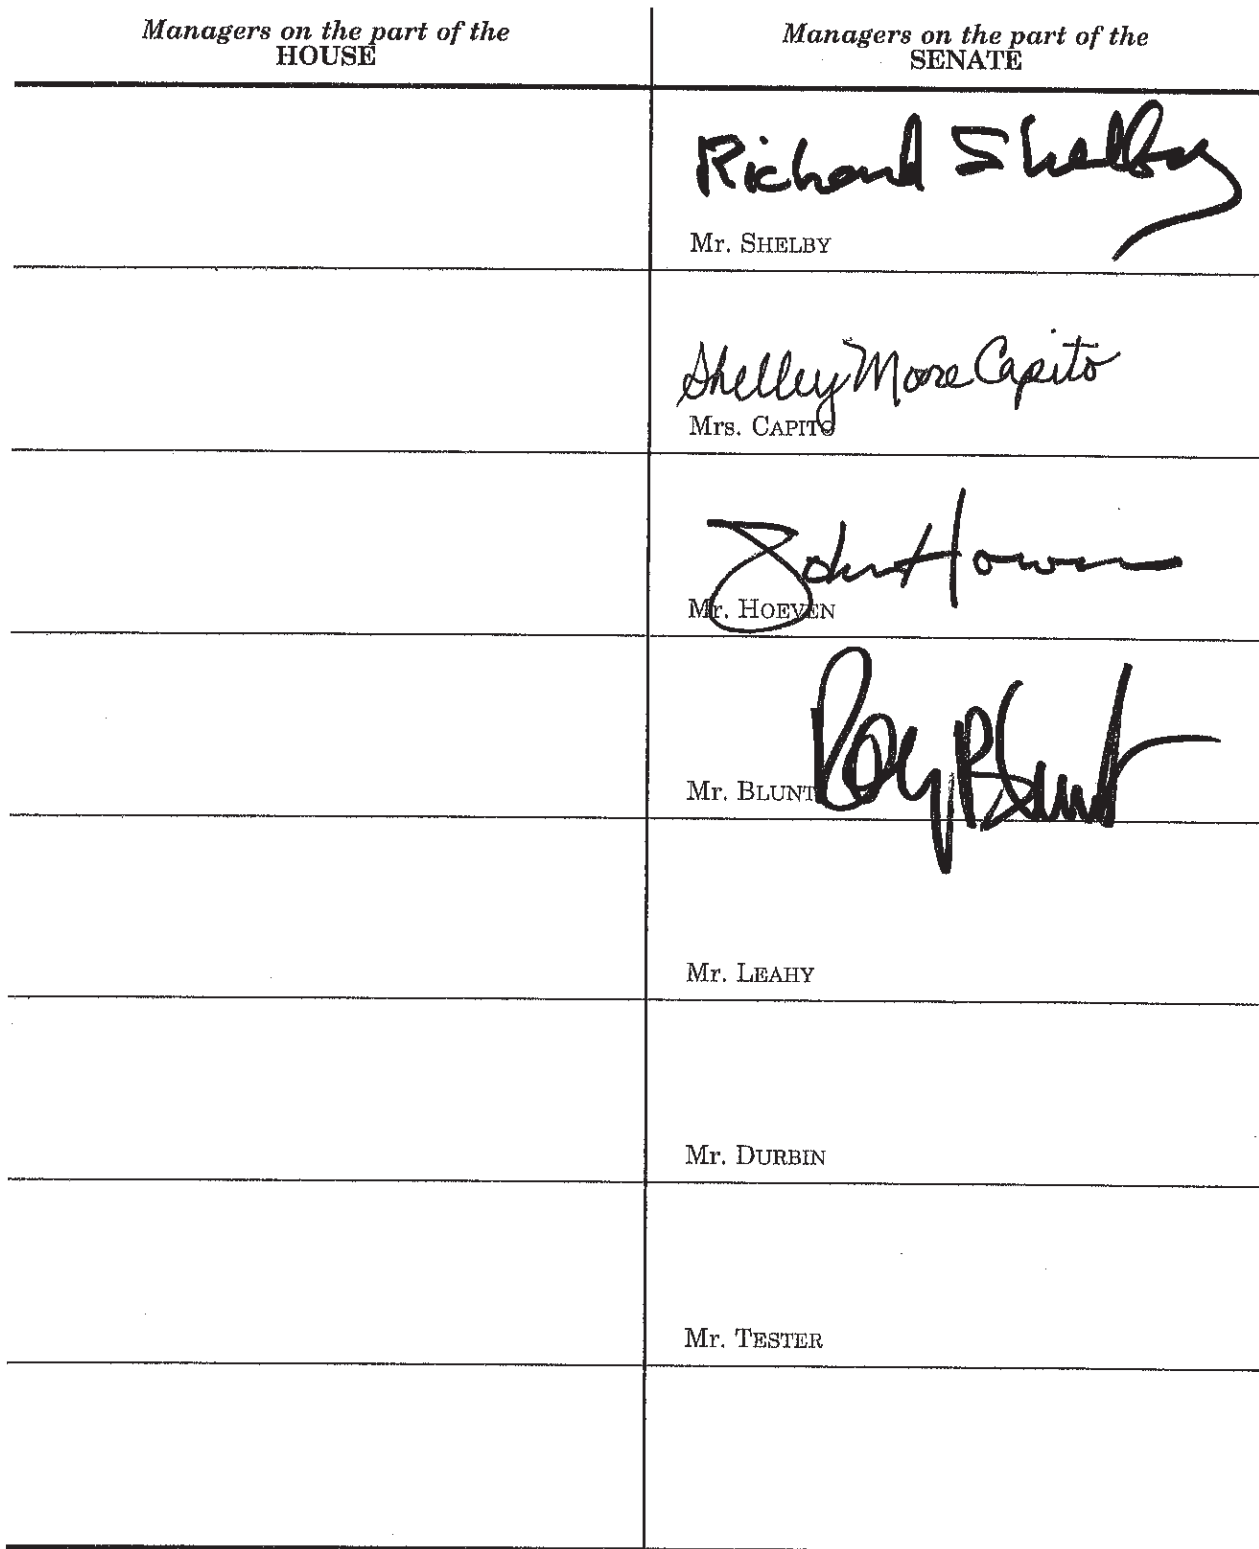 Managers on the part of the
HOUSE
Managers on the part of the
SENATE
Richard Shelby
Mr. SHELBY
Shelley Moore Capito
Mrs. CAPITO
John Hoeven
Mr. HOEVEN
Roy Blunt
Mr. BLUNT
Mr. LEAHY
Mr. DURBIN
Mr. TESTER